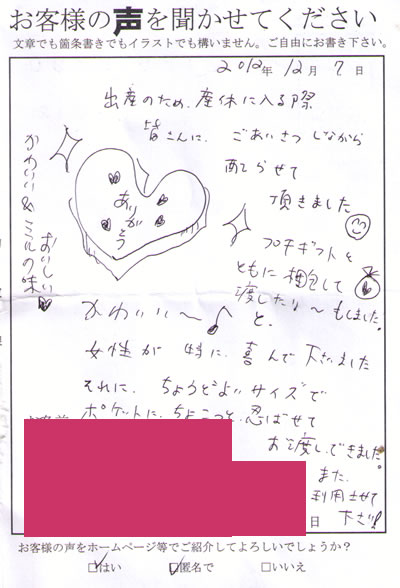 お客様の声を聞かせてください
文章でも箇条書きでもイラストでも構いません。ご自由にお書き下さい。
2012年 12月 7日
出産のため、産休に入る際
皆さんに、ごあいさつしながら
配らせて
頂きました
ありがとう
かわいい&ミルクの味
おいしい
プチギフトを
ともに梱包して
渡したり〜もしました。
かわいい〜♪と、
女性が特に、喜んで下さいました
それに、ちょうどよいサイズで
ポケットに、ちょこっと、忍ばせて
お渡しできました。
また、
利用させて
日 下さい!
お客様の声をホームページ等でご紹介してよろしいでしょうか?
□はい ☑匿名で □いいえ